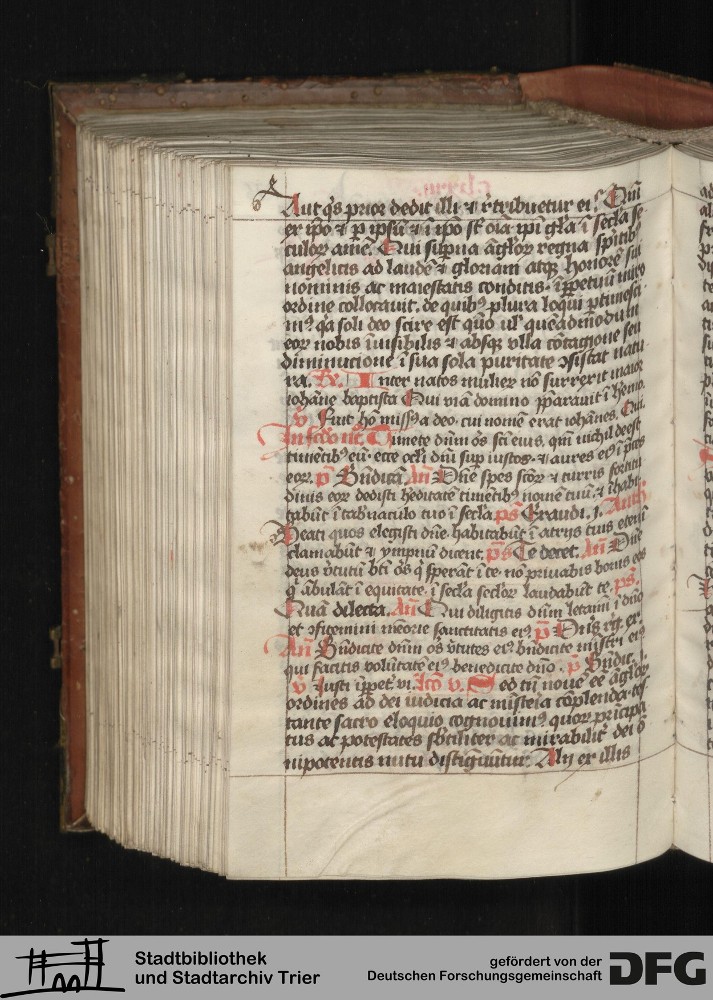 Aut q̄s prior dedit illi ⁊ rͤtribuetur ei? Qm̄
ex ip̄o ⁊ p ip̄sū ⁊ ī ip̄o st̄ oīa ip̄i gl̄ia ī secl̄a se
culor amē. Qui sup̄na āgl̄or regna sp̄itibꝰ
angelicis ad laudē ⁊ gloriam atqꝫ honorē sui
nominis ac maiestatis conditis. īp̄petuū miro
ordine collocauit. de quibꝰ plura loqui p̄timesci
mꝰ q̄a soli deo scire est quō ul' queādmodum
eor nobis īuisibilis ⁊ absqꝫ ulla cōtagione seu
diminucione ī sua sola puritate ꝯsistat natu
ra. R̄. Inter natos mulier nō surrexit maior
iohāne baptista Qui viā domino p̄parauit ī hemo.
v̄ Fuit hō missꝰ a deo. cui nomē erat iohānes. Qui.
In scd̄o nͦc. Timete dn̄m ōs sc̄i eius. qm̄ nichil deest
timētibꝰ eū. ecce ocl̄i dn̄i sup iustos. ⁊ aures eiꝰ ī p̄ces
eor. p̄ Bn̄dicā. An̄ Dn̄e spes sc̄or ⁊ turris fortitu
dinis eor dedisti h̄editatē timētibꝰ nomē tuū. ⁊ īhabi
tabūt ī tabn̄aculo tuo ī secl̄a. p̄s Exaudi. j.
Beati quos elegisti dn̄e. habitabūt ī atrijs tuis eternū
clamabūt ⁊ ympnū dicent. p̄s Te decet. An̄ Dn̄e
deus v̄tutū bt̄i ōs q̄ sperāt ī te. nō priuabis bonis eos
q̄ ābulāt ī equitate. ī secl̄a seclor laudabūt te. p̄s.
Quā dilecta. An̄ Qui diligitis dn̄m letam̄ ī dn̄o
et ꝯfitemini mēorie sanctitatis eiꝰ. p̄ Dn̄s rͤg. ex.
An̄ Bn̄dicite dn̄m ōs v̄tutes eiꝰ. bn̄dicite mīstri eiꝰ
qui facitis volūtatē eiꝰ benedicite dn̄o. p̄ Bn̄dic. j.
v̄ Iusti īp̄pet. vi. Lcō v. Sed tn̄ nouē eē āgl̄or
ordines ad dei iudicia ac mīsteia cōplenda. tes
tante sacro eloquio cognouimꝰ. quor prīcipa
tus ac potestates sb̄tiliter ac mirabilit' dei ō
nipotentis nutu distīguūtur. Alij ex illis
Stadtbibliothek
und Stadtarchiv Trier
gefördert von der
Deutschen Forschungsgemeinschaft
DFG